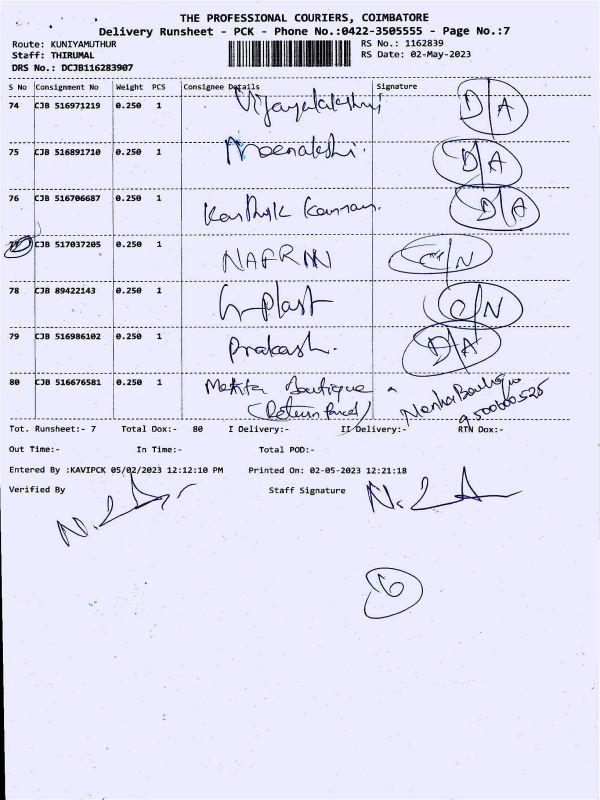 THE PROFESSIONAL COURIERS, COIMBATORE
Delivery Runsheet - PCK - Phone No.:0422-3505555 - Page No.:7
Route: KUNIYAMUTHUR RS No.: 1162839
Staff: THIRUMAL RS Date: 02-May-2023
DRS No.: DCJB116283907
S No Consignment No Weight PCS Consignee Details Signature
74 CJB 516971219 0.250 1 Vijayalakshmi D/A
75 CJB 516891710 0.250 1 Meenakshi. D/A
76 CJB 516706687 0.250 1 Karthik Kannan. D/A
77 CJB 517037205 0.250 1 /N
78 CJB 89422143 0.250 1 plast /N
79 CJB 516986102 0.250 1 Prakash. D/A
80 CJB 516676581 0.250 1 Boutique
(Return Parcel) 9500600525
Tot. Runsheet:- 7 Total Dox:- 80 I Delivery:- II Delivery:- RTN Dox:-
Out Time:- In Time:- Total POD:-
Entered By :KAVIPCK 05/02/2023 12:12:10 PM Printed On: 02-05-2023 12:21:18
Verified By Staff Signature